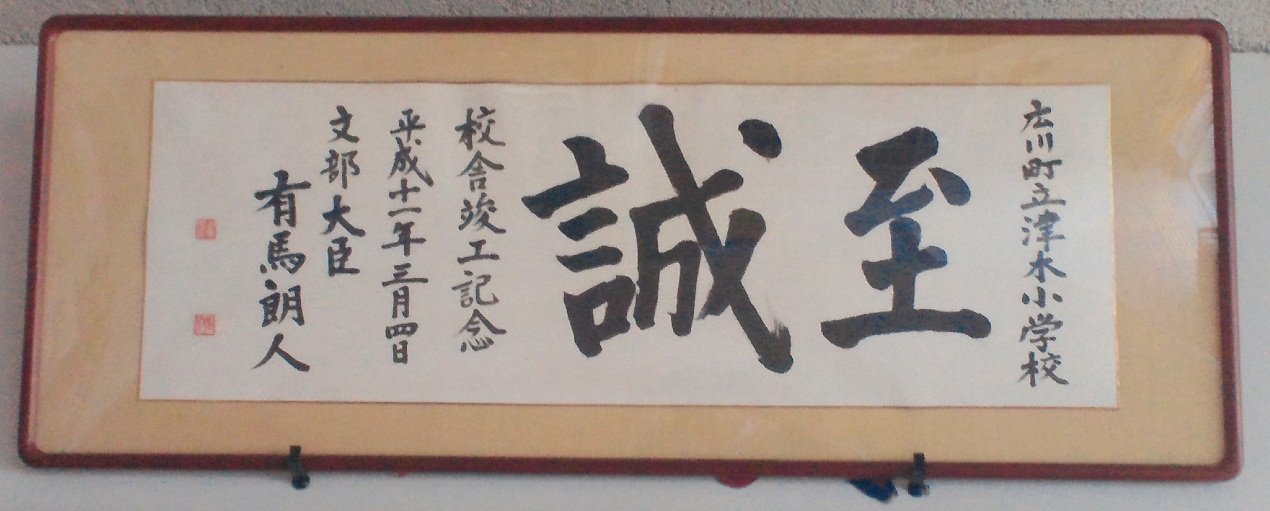 広川町立津木小学校
至誠
校舎竣工記念
平成十一年三月四日
文部大臣
有馬朗人